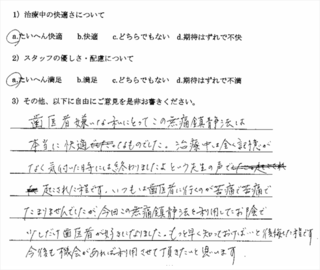 1) 治療中の快適さについて
a.たいへん快適 b.快適 c.どちらでもない d.期待はずれで不快
2) スタッフの優しさ・配慮について
a.たいへん満足 b.満足 c.どちらでもない d.期待はずれで不満
3) その他、以下に自由にご意見を是非お書きください。
歯医者嫌いな私にとってこの無痛鎮静法は
本当に快適なものでした。治療中は全く記憶が
なく気付いた時には終わりましたよという先生の声で
起こされた程です。いつもは歯医者に行くのが苦痛で苦痛で
たまりませんでしたが今回この無痛鎮静法を利用したお陰で
少しだけ歯医者が好きになりました。もっと早く知っておけばと後悔した程です
今後も機会があれば利用させて頂きたいと思います